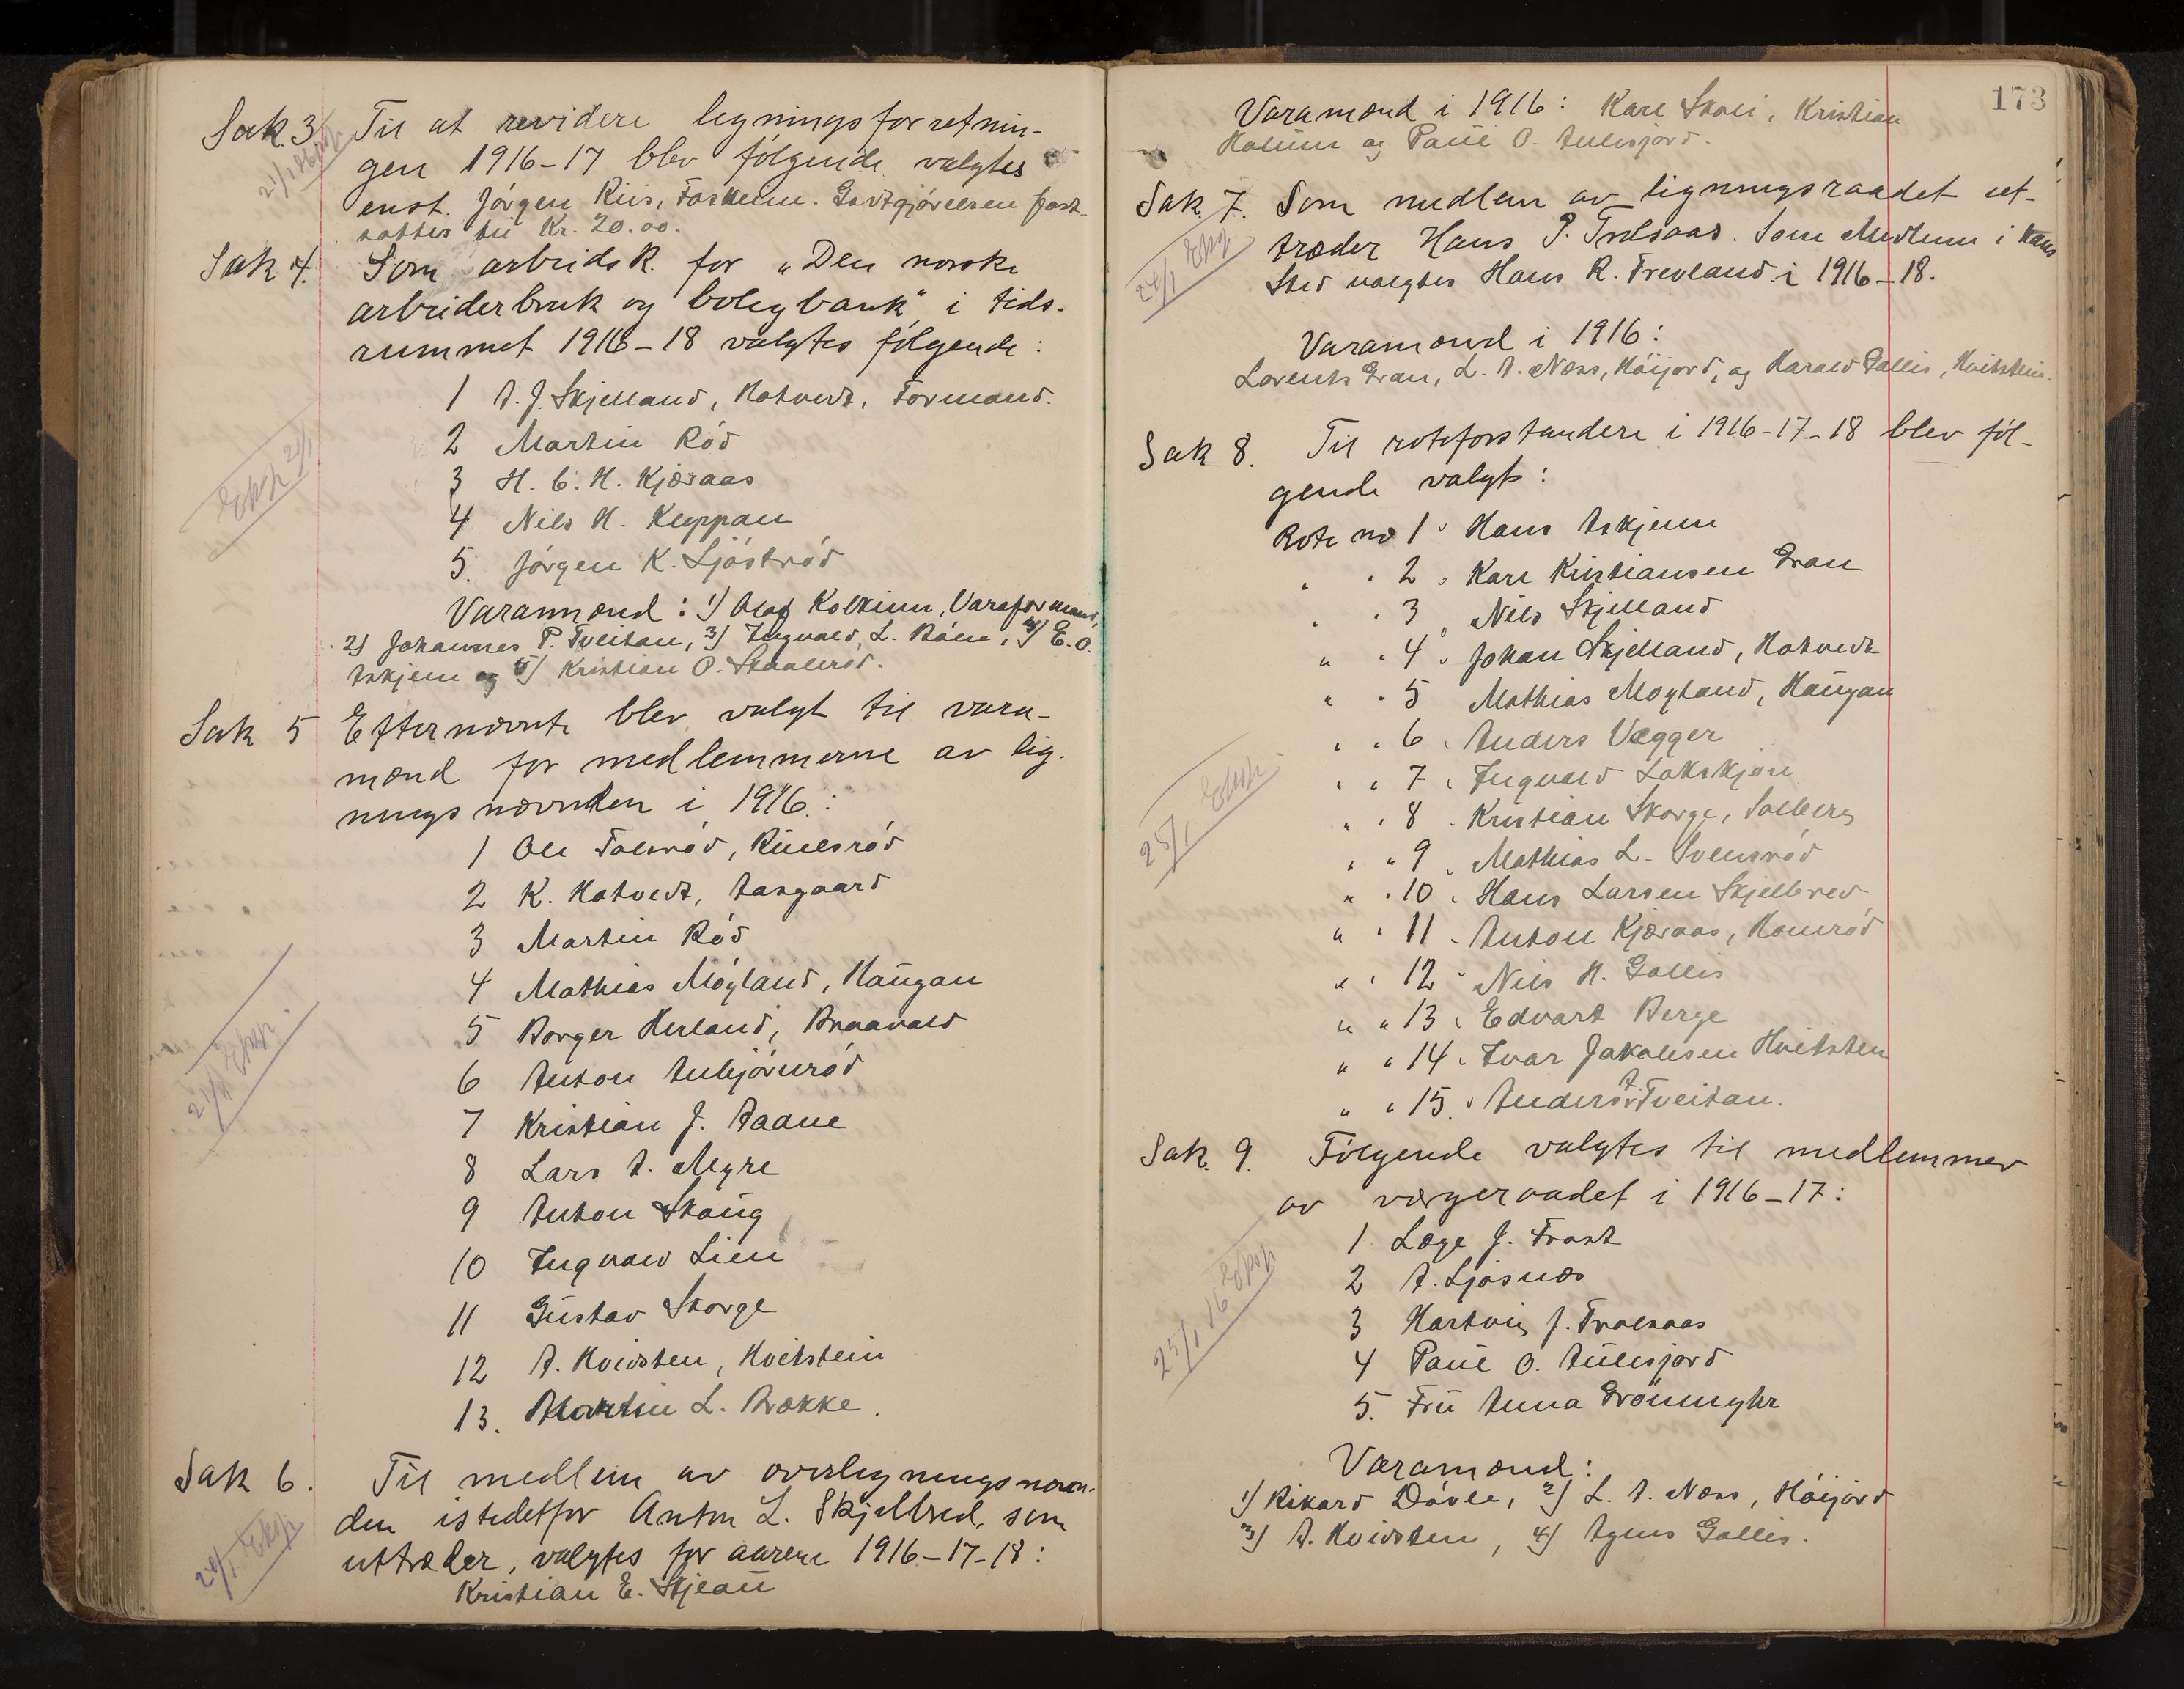 Sak 3. Til at revidere ligningsforretnin-
gen 1916-17 blev følgende valgtes
enst. Jørgen Riis, Foskum. Godtgjørelsen fast-
sattes til Kr. 20.00.
Sak 4. Som arbeidsk. for "Den norske
arbeiderbruk og boligbank" i tids-
rummet 1916-18 valgtes følgende:
1 A. J. Skjelland, Hotvedt, Formand.
2 Martin Rød
3 H. C. H. Kjæraas
4 Nils H. Kleppan
5. Jørgen K. Ljøstrød
Varamænd: 1) Olaf Kolkinn, Varaformand,
2) Johannes P. Tveitan, 3) Ingvald L. Bøen, 4) E. O.
Askjem og 5) Kristian O. Skaalerød.
Eksp 21/1
Sak 5 Efternævnte blev valgt til vara-
mænd for medlemmerne av lig-
ningsnævnden i 1916:
1 Ole Tolsrød, Ruelsrød
2 K. Hotvedt, Aasgaard
3 Martin Rød
4 Mathias Møyland, Haugan
5 Borger Herland, Braavald
6 Anton Anbjørnrød
7 Kristian J. Aaane
8 Lars A. Myre
9 Anton Skaug
10 Ingvald Lien
11 Gustav Skorge
12 A. Hvidsten, Hvitstein
13. Martin L. Brække.
21/1 Eksp.
Sak 6. Til medlem av overligningsnævn-
den istedetfor Anton L. Skjelbred, som
uttræder, valgtes for aarene 1916-17-18:
Kristian E. Skjeau
24/1 Eksp.
173
Varamænd i 1916: Karl Skoli, Kristian
Holum og Paul O. Aulesjord.
Sak 7. Som medlem av ligningsraadet ut-
træder Hans P. Trolsaas. Som Medlem i hans
Sted valgtes Hans R. Frevland i 1916-18.
24/1 Eksp
Varamænd i 1916:
Lorents Gran, L. A. Næss, Høijord, og Harald Gallis, Hvitstein.
Sak 8. Til roteforstandere i 1916-17-18 blev føl-
gende valgt:
Rote no 1. Hans Askjem
" " 2. Karl Kristiansen Gran
" " 3. Nils Skjelland
" " 4. Johan Skjelland, Hotvedt
" " 5 Mathias Moyland, Haugan
" " 6. Anders Vægger
" " 7. Ingvald Lakskjøn
" " 8. Kristian Skorge, Solberg
" " 9. Mathias L. Svensrød
" " 10. Hans Larsen Skjelbred
" " 11. Anton Kjæraas, Homrød
" " 12. Nils H. Gallis
" " 13. Edvart Berge
" " 14. Ivar Jakobsen Hvitsten
" " 15. Anders A. Tveitan.
25/1 Eksp.
Sak. 9. Følgende valgtes til medlemmer
av vergeraadet i 1916-17:
1. Læge J. Frost
2 A. Ljøsnæs
3 Hartvig J. Trolsaas
4 Paul O. Aulesjord
5. Fru Anna Grønmyhr
25/1 16 Eksp.
Varamænd:
1) Rikard Døvle, 2) L. A. Næss, Høijord
3) A. Hvidsten, 4) Agnes Gallis.